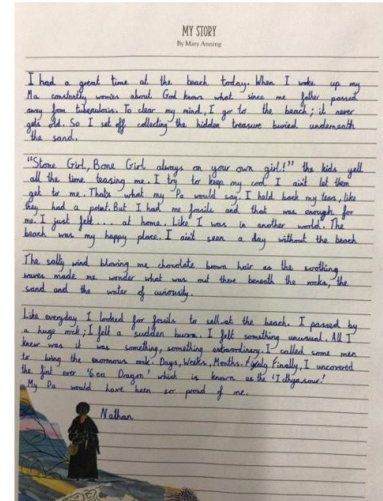 MY STORY
By Mary Anning
I had a great time at the beach today. When I woke up my
Ma constantly worries about God knows what since me father passed
away from tuberculosis. To clear my mind, I go to the beach; it never
gets old. So I set off collecting the hidden treasure buried underneath
the sand.
"Stone Girl, Bone Girl always on your own girl!" the kids yell
all the time teasing me. I try to keep my cool. I aint let them
get to me. Thats what my Pa would say. I hold back my tears, like
they had a point. But, I had me fossils and that was enough for
me. I just felt... at home. Like I was in another world. The
beach was my happy place. I aint seen a day without the beach
The salty wind blowing me chocolate brown hair as the soothing
waves made me wonder what was out there beneath the rocks, the
sand and the water of curiousity.
Like everyday I looked for fossils to sell at the beach. I passed by
a huge rock; I felt a sudden I felt something unusual. All I
knew was it was something, something extraordinary. I called some men
to bring the enormous rock. Days, Weeks, Months. Finally, I uncovered
the first ever 'Sea Dragon' which is known as the
My Pa would have been so proud of me.
Nathan